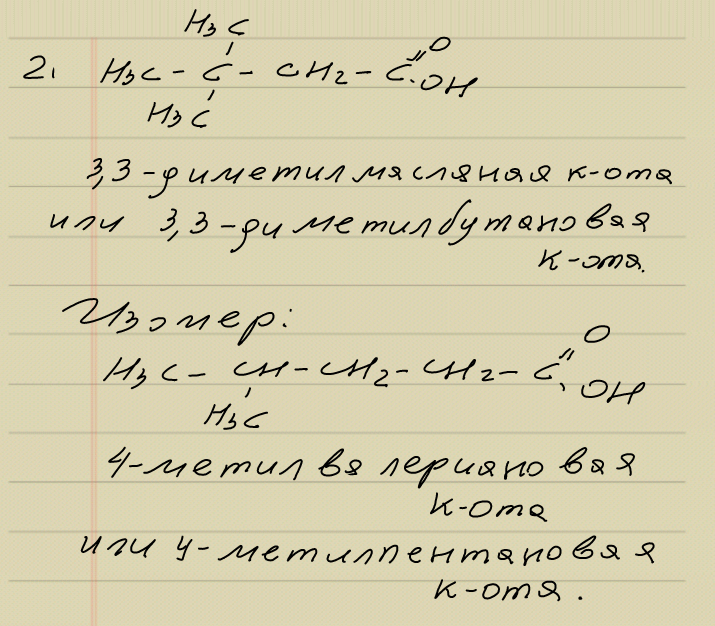 H₃C
2. H₃C - C - CH₂ - C=O
OH
H₃C
3,3-диметилмасляная к-ота
или 3,3-диметилбутановая
к-ота.
Изомер:
O
H₃C - CH - CH₂ - CH₂ - C
OH
H₃C
4-метил валериановая
к-ота
или 4-метилпентановая
к-ота.